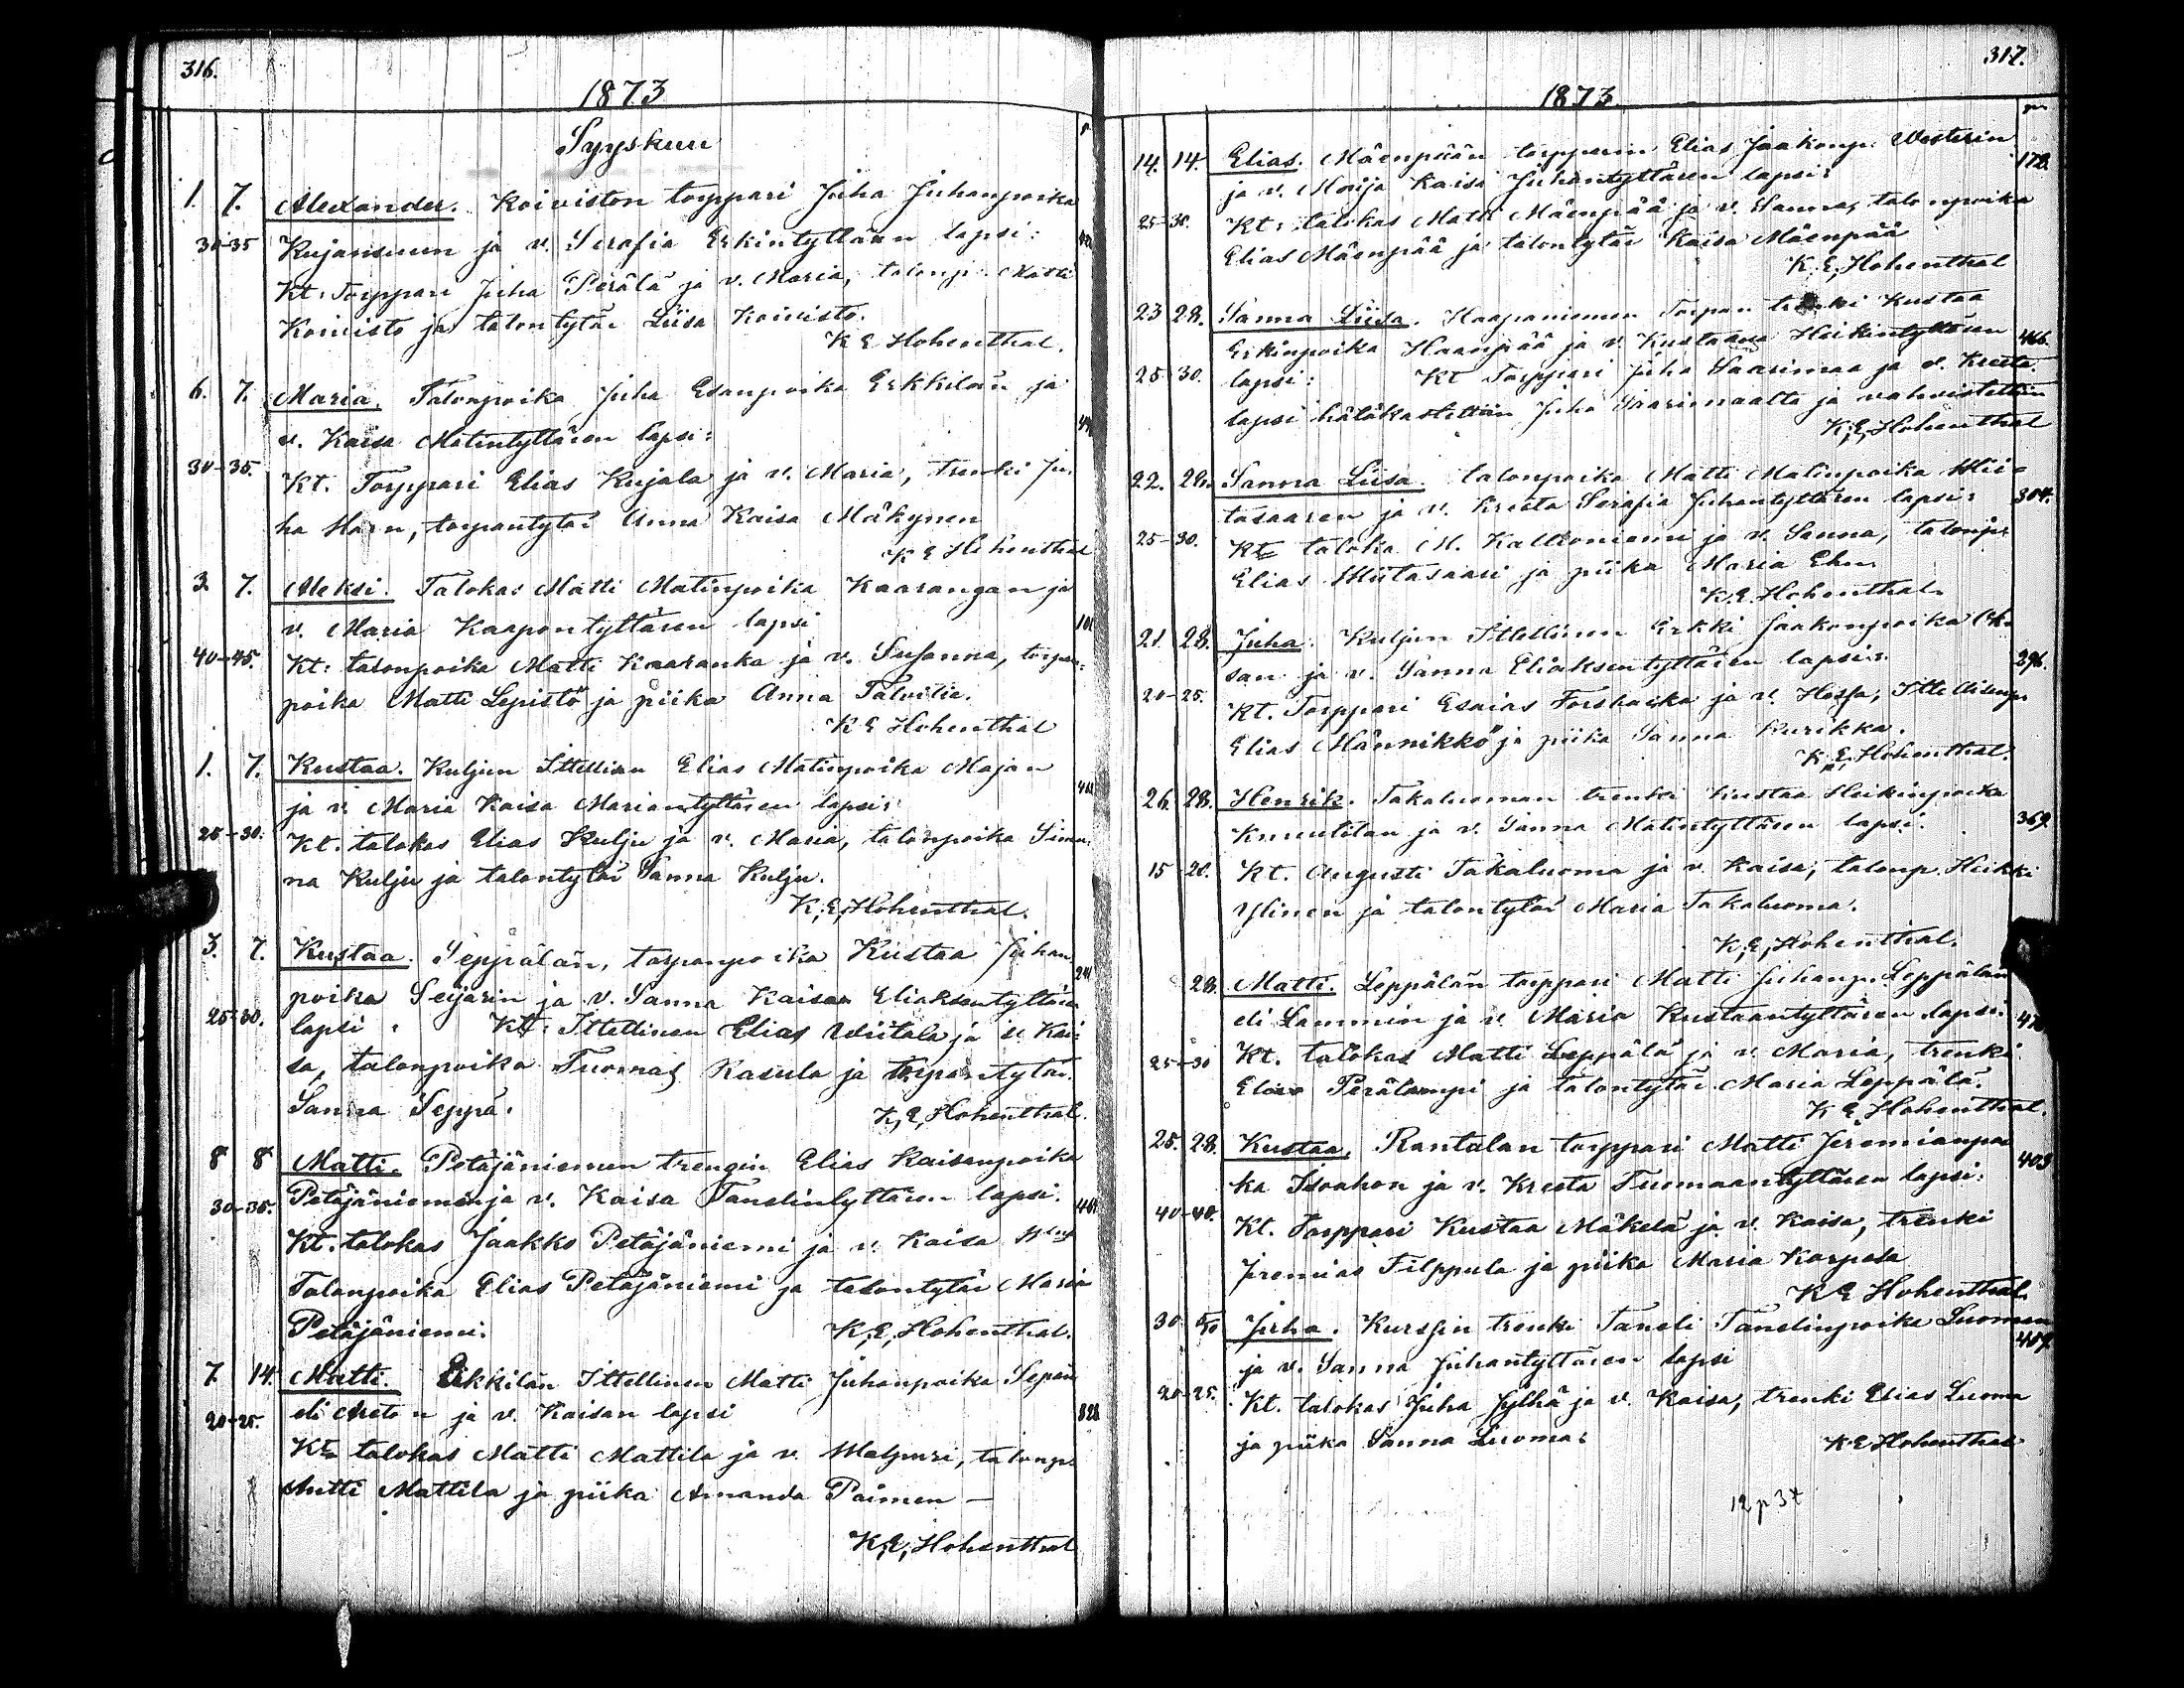 316.
1873
Syyskuu
1. 7. Alexander. Koiviston torppari Juha Juhanpoika
30-35 Kujansuun ja v. Serafia Erkintyttären lapsi:
Kt: Torppari Juha Perälä ja v. Maria, talonp. Matti
Koivisto ja talontytär Liisa Koivisto.
K E Hohenthal.
6. 7. Maria. Talonpoika Juha Esanpoika Erkkilän ja
v. Kaisa Matintyttären lapsi:
30-35. Kt. Torppari Elias Kujala ja v. Maria, trenki Ju-
ha Harn, torpantytär Anna Kaisa Mäkynen
K E Hohenthal
3. 7. Aleksi. Talokas Matti Matinpoika Kaarangan ja
v. Maria Kaapontyttären lapsi
40-45. Kt: talonpoika Matti Kaaranka ja v. Susanna, torpan-
poika Matti Lepistö ja piika Anna Talvitie.
K E Hohenthal
1. 7. Kustaa. Kuljun Ittellisen Elias Matinpoika Majan
ja v. Maria Kaisa Mariantyttären lapsi:
25-30. Kt. talokas Elias Kulju ja v. Maria, talonpoika Simu-
na Kulju ja talontytär Sanna Kulju.
K, E, Hohenthal.
3. 7. Kustaa. Seppälän, torpanpoika Kustaa Juhan
poika Seijarin ja v. Sanna Kaisan Eliaksentyttären 241
25-30. lapsi. Kt: Ittellinen Elias Wiitala ja v. Kai-
sa, talonpoika Tuomas Rasula ja torpantytär
Sanna Seppä.
K, E, Hohenthal.
8 8 Matti. Petäjäniemen trengin Elias Kaisanpoika
30-35. Petäjäniemen ja v. Kaisa Tanelintyttären lapsi.
Kt. talokas Jaakko Petäjäniemi ja v. Kaisa
Talonpoika Elias Petäjäniemi ja talontytär Maria
Petäjäniemi.
K, E, Hohenthal.
7. 14. Matti. Eikkilän Ittellinen Matti Juhanpoika Sepän
20-25. eli ja v. Kaisan lapsi 328
Kt: talokas Matti Mattila ja v. Walpuri, talonp.
Antti Mattila ja piika Amanda Paimen —
K, E, Hohenthal
317.
1873
14. 14. Elias. Mäenpään torpparin Elias Jaakonp. Westerin 178.
ja v. Maija Kaisa Juhantyttären lapsi:
25-30. Kt: talokas Matti Mäenpää ja v. Sanna, talonpoika
Elias Mäenpää ja talontytär Kaisa Mäenpää
K, E, Hohenthal
23 28. Sanna Liisa. Haapaniemen Torpan trenki Kustaa
Erkinpoika Haanpää ja v. Kustaava Heikintyttären 466.
25-30. lapsi: Kt Torppari Juha Saarimaa ja v. Kreeta.
lapsi hätäkastettiin Juha Saarimaalta ja vahvistettiin
K, E, Hohenthal
22. 28. Sanna Liisa. talonpoika Matti Matinpoika Wii-
tasaaren ja v. Kreeta Serafia Juhantyttären lapsi: 304.
25-30. Kt: taloka. M. Kallioniemi ja v. Sanna, talonp.
Elias Wiitasaari ja piika Maria Ehn
K. E. Hohenthal.
21 28. Juha. Kuljun Ittellinen Erkki Jaakonpoika
san ja v. Sanna Eliaksentyttären lapsi: 296.
20-25. Kt. Torppari Esaias Forsbacka ja v. Ittellisenp.
Elias Männikkö ja piika Sanna Kurikka.
K, E, Hohenthal.
26. 28. Henrik. Takaluoman trenki Kustaa Heikinpoika
Knuutilan ja v. Sanna Matintyttären lapsi. 369.
15-20. Kt. Augusti Takaluoma ja v. Kaisa, talonp. Heikki
Ylinen ja talontytär Maria Takaluoma.
K, E, Hohenthal.
28. Matti. Leppälän torppari Matti Juhanp. Leppälän
eli Lammin ja v. Maria Kustaantyttären lapsi:
25-30 Kt. talokas Matti Leppälä ja v. Maria, trenki
Elias Perälampi ja talontytär Maria Leppälä.
K E Hohenthal.
25. 28. Kustaa. Rantalan torppari Matti Jeremianpoi
ka Isoahon ja v. Kreeta Tuomaantyttären lapsi: 403
40-40. Kt. Torppari Kustaa Mäkelä ja v. Kaisa, trenki
Jeremias Filppula ja piika Maria Karpela
K E Hohenthal.
30. 5/10 Juha. Kurssin trenki Taneli Tanelinpoika Luoman
ja v. Sanna Juhantyttären lapsi 457
20-25. Kt. talokas Juha Jylhä ja v. Kaisa, trenki Elias Luoma
ja piika Sanna Luoma:
K E Hohenthal
12 p 3 t